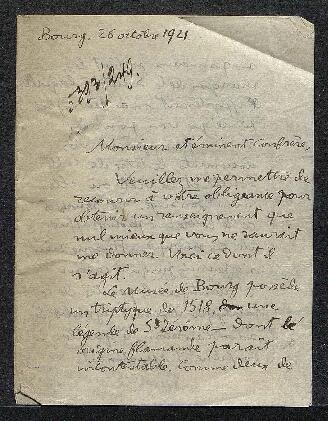 Bourg, 26 octobre 1921
Monsieur et éminent Confrère,
Veuillez me permettre de
recourir à votre obligeance pour
obtenir un renseignement que
nul mieux que vous ne saurait
me donner. Voici ce dont il
s'agit.
Le Musée de Bourg possède
un triptyque de 1518, une
légende de St Jérôme — dont le
origine flamande paraît
incontestable, comme deux de